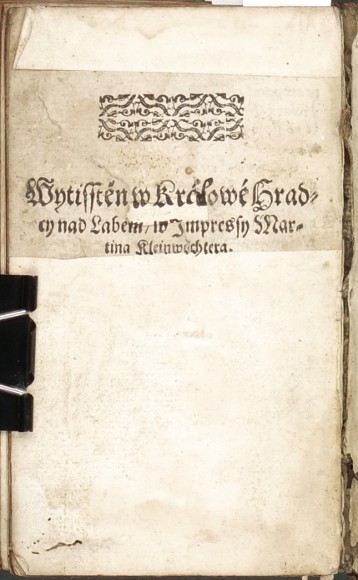 Wytisstěn w Králowé Hrad-
cy nad Labem / w Impressy Mar-
tina Kleinwechtera.